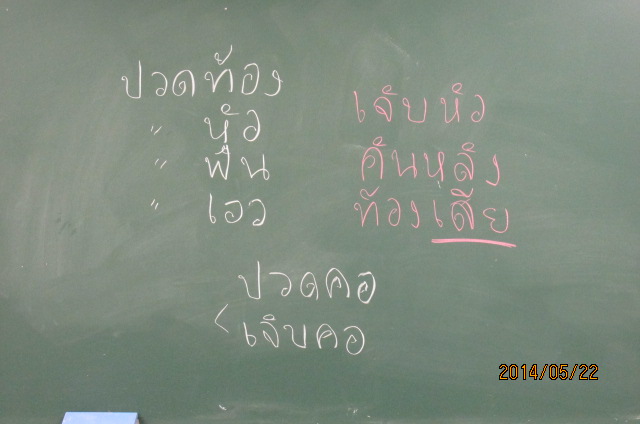 ปวดท้อง
〃 หัว
〃 ฟัน
〃 เอว
เจ็บหัว
คันหลัง
ท้องเสีย
ปวดคอ
< เจ็บคอ
2014/05/22